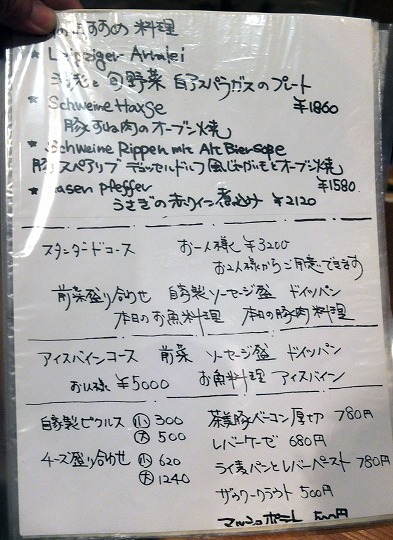 おすすめ 料理
★ Leipziger Allerlei
と旬野菜 白アスパラガスのプレート
★ Schweine Haxse ¥1860
豚すね肉のオーブン焼
★ Schweine Rippen mit Alt Biersoße
豚スペアリブ デュッセルドルフ風じゃがいもとオーブン焼
¥1580
★ Hasen pfeffer
うさぎの赤ワイン煮込み ¥2120
スタンダードコース お一人様 ¥3200
お2人様からご用意できます
前菜盛り合わせ 自家製ソーセージ盛 ドイツパン
本日のお魚料理 本日の豚肉料理
アイスバインコース 前菜 ソーセージ盛 ドイツパン
お1人様 ¥5000 お魚料理 アイスバイン
自家製ピクルス 小 300
大 500
チーズ盛り合わせ 小 620
大 1240
茶美豚ベーコン厚切 780円
レバーケーゼ 680円
ライ麦パンとレバーペースト 780円
ザワークラウト 500円
マッシュポテト